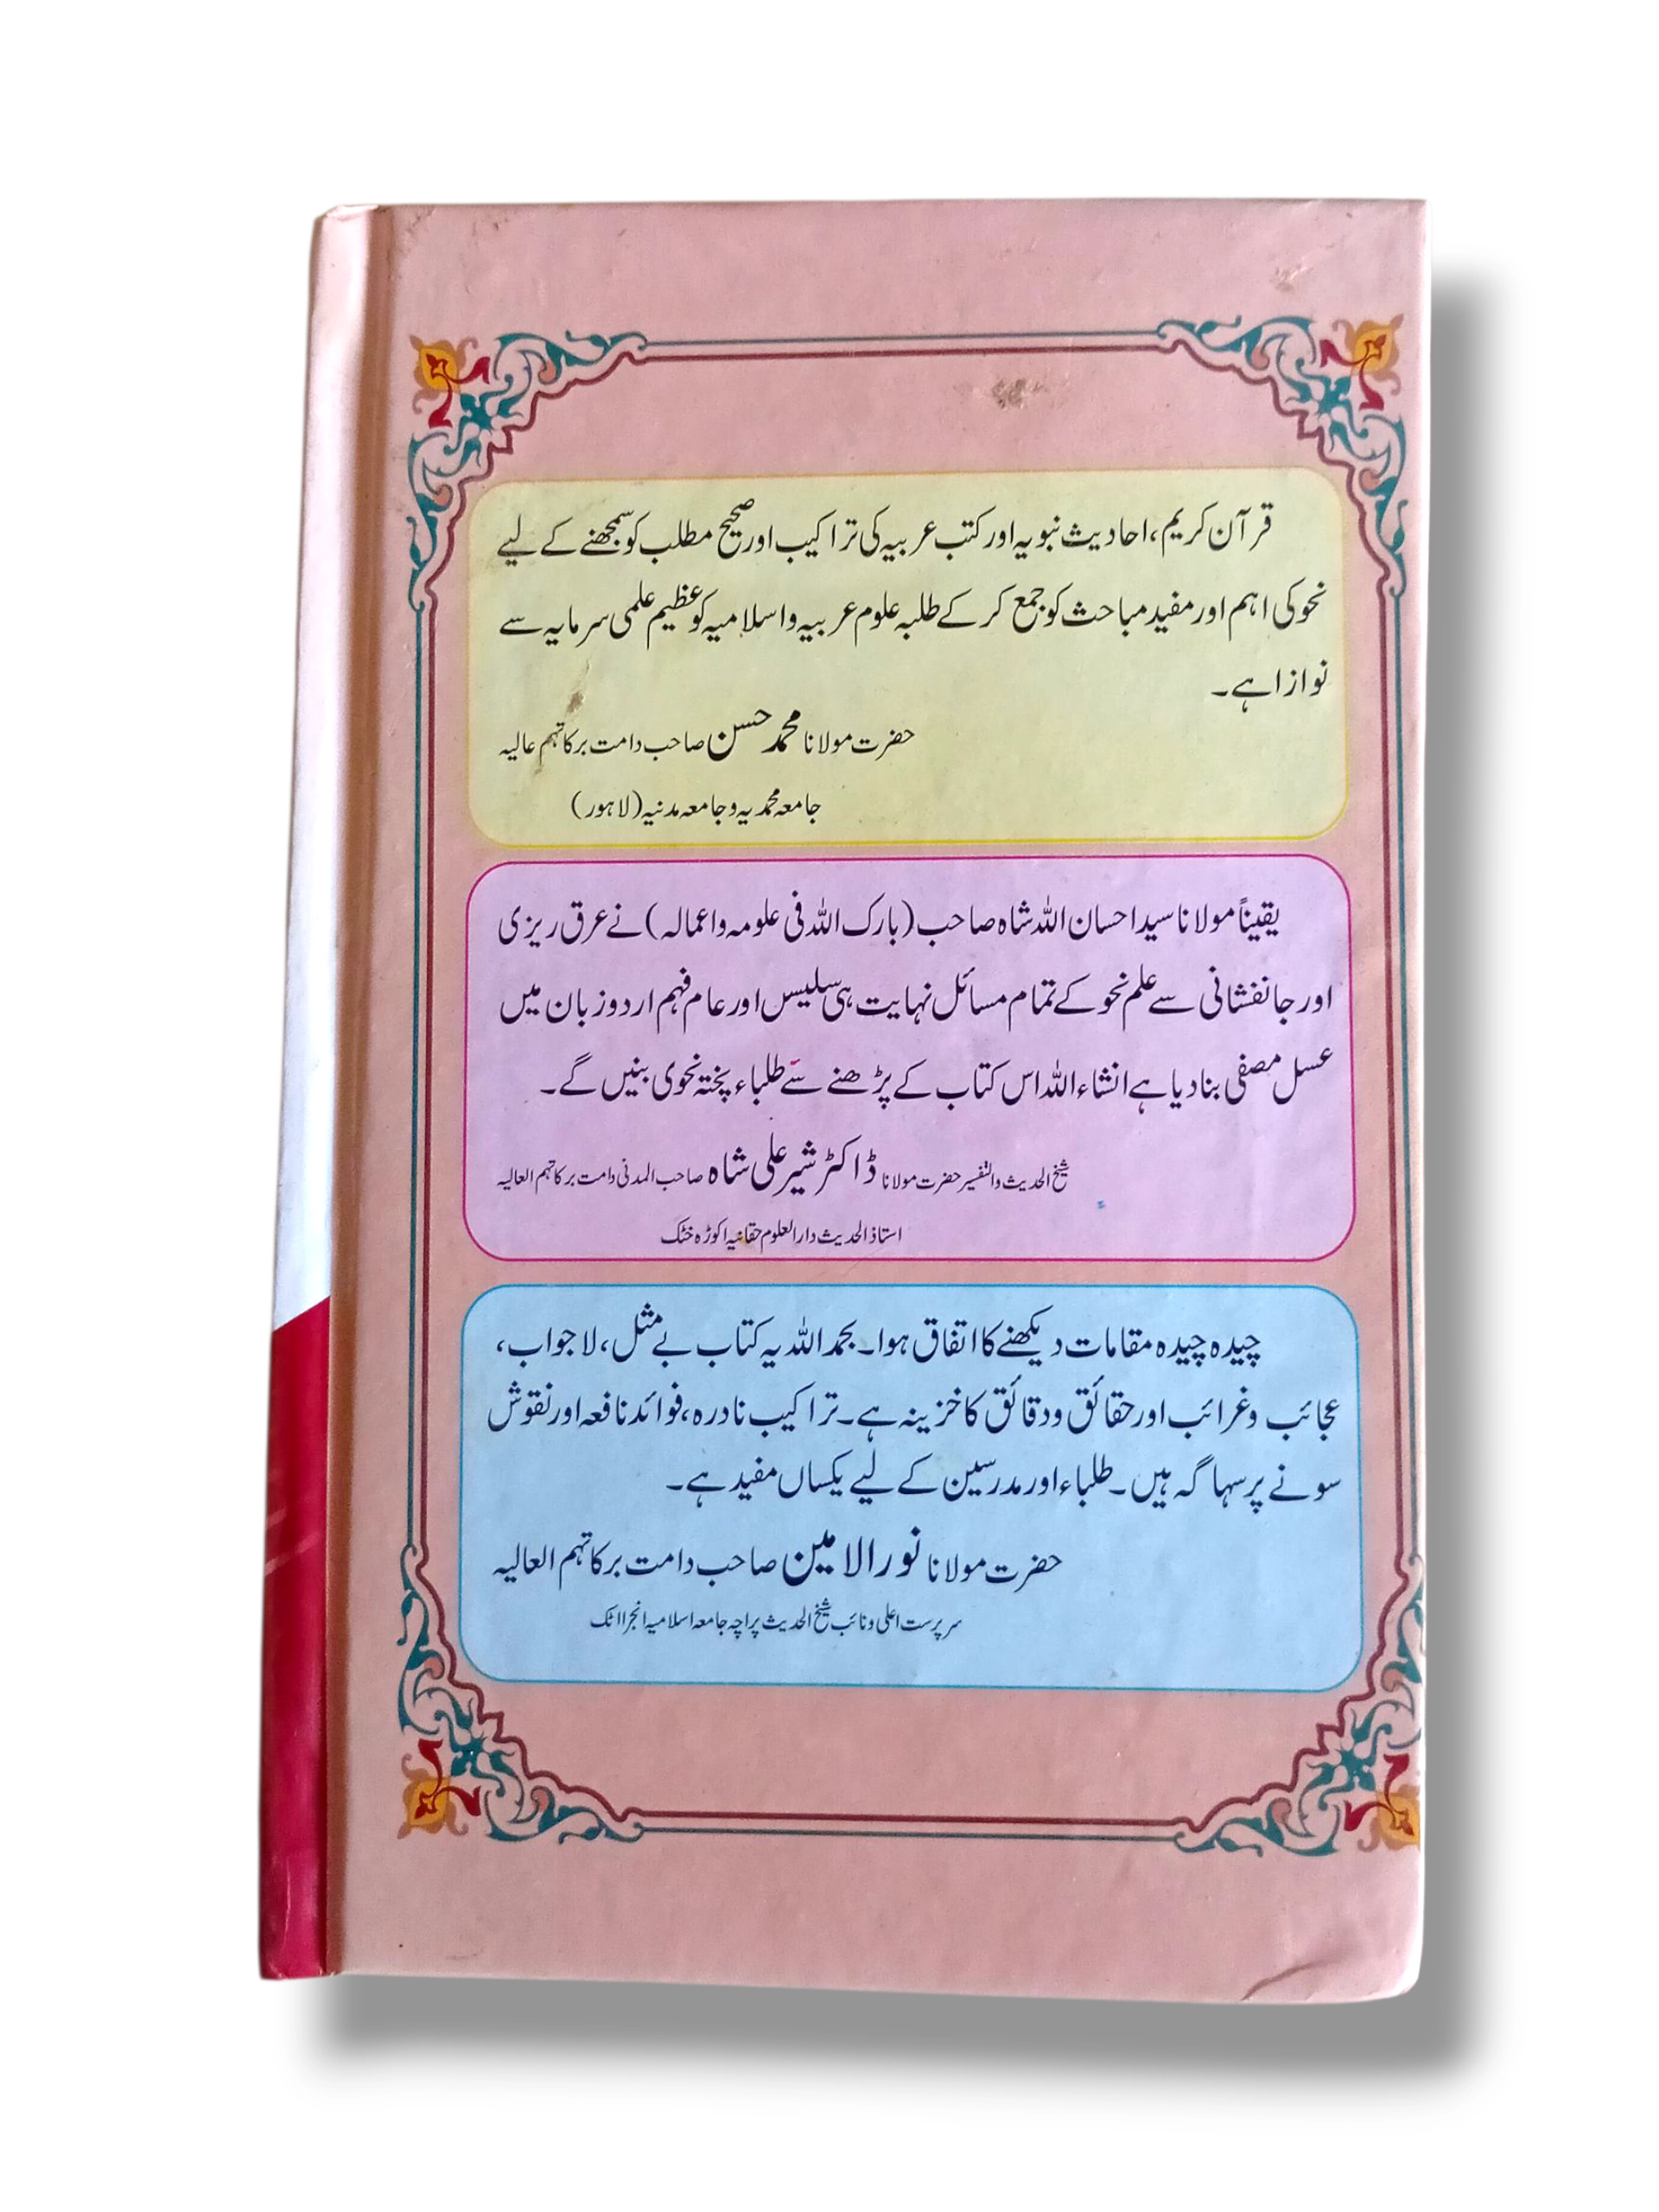 قرآن کریم، احادیث نبویہ اور کتب عربیہ کی تراکیب اور صحیح مطلب کو سمجھنے کے لیے
نحو کی اہم اور مفید مباحث کو جمع کر کے طلبہ علوم عربیہ و اسلامیہ کو عظیم علمی سرمایہ سے
نوازا ہے۔
حضرت مولانا محمد حسن صاحب دامت برکاتہم عالیہ
جامعہ محمدیہ و جامعہ مدنیہ (لاہور)
یقیناً مولانا سید احسان اللہ شاہ صاحب (بارک اللہ فی علومہ واعمالہ) نے عرق ریزی
اور جانفشانی سے علم نحو کے تمام مسائل نہایت ہی سلیس اور عام فہم اردو زبان میں
عسل مصفی بنا دیا ہے انشاء اللہ اس کتاب کے پڑھنے سے طلباء پختہ نحوی بنیں گے۔
شیخ الحدیث والتفسیر حضرت مولانا ڈاکٹر شیر علی شاہ صاحب المدنی دامت برکاتہم العالیہ
استاذ الحدیث دارالعلوم حقانیہ اکوڑہ خٹک
چیدہ چیدہ مقامات دیکھنے کا اتفاق ہوا۔ بحمد اللہ یہ کتاب بے مثل، لاجواب،
عجائب وغرائب اور حقائق ودقائق کا خزینہ ہے۔ تراکیب نادرہ، فوائد نافعہ اور نقوش
سونے پر سہاگہ ہیں۔ طلباء اور مدرسین کے لیے یکساں مفید ہے۔
حضرت مولانا نور الامین صاحب دامت برکاتہم العالیہ
سرپرست اعلی و نائب شیخ الحدیث پراچہ جامعہ اسلامیہ انجرا اٹک